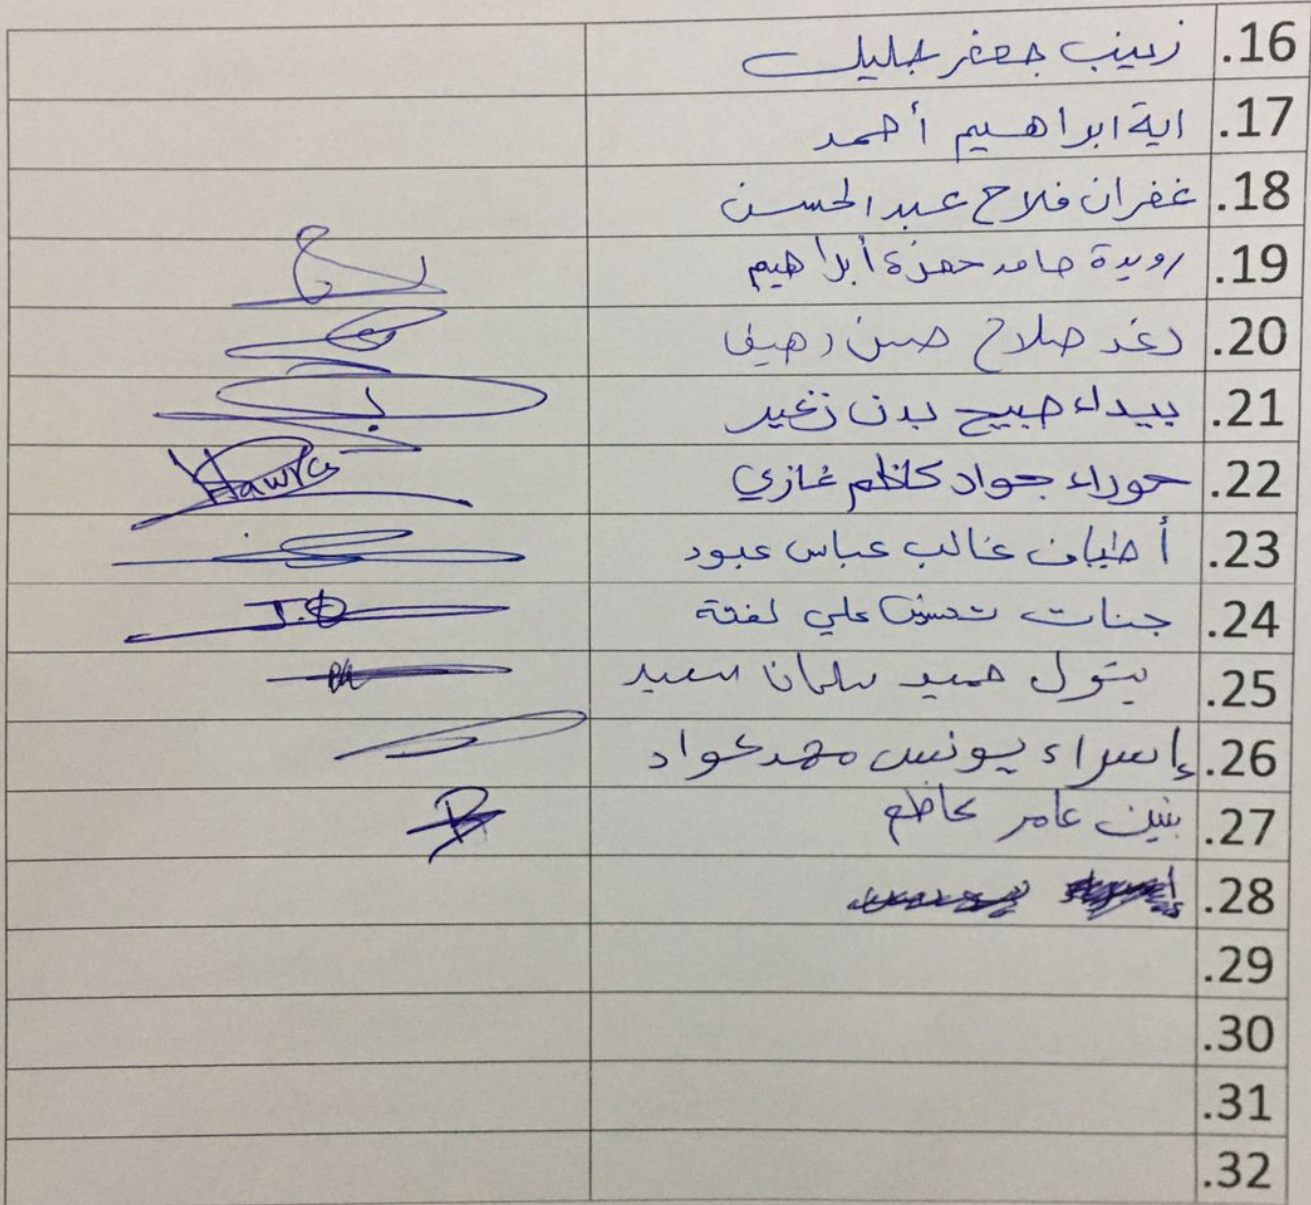 16. زينب جعفر جليل
17. اية ابراهيم أحمد
18. غفران فلاح عبد الحسن
19. رويدة حامد حمزة أبراهيم
20. رغد صلاح حسن
21. بيداء صبيح بدن زغير
22. حوراء جواد كاظم غازي
Hawra
23. أطياف غالب عباس عبود
24. جنات علي لفتة
J.
25. بتول حميد سلمان سعيد
26. إسراء يونس مهدي
27. بنين عامر كاظم
28.
29.
30.
31.
32.